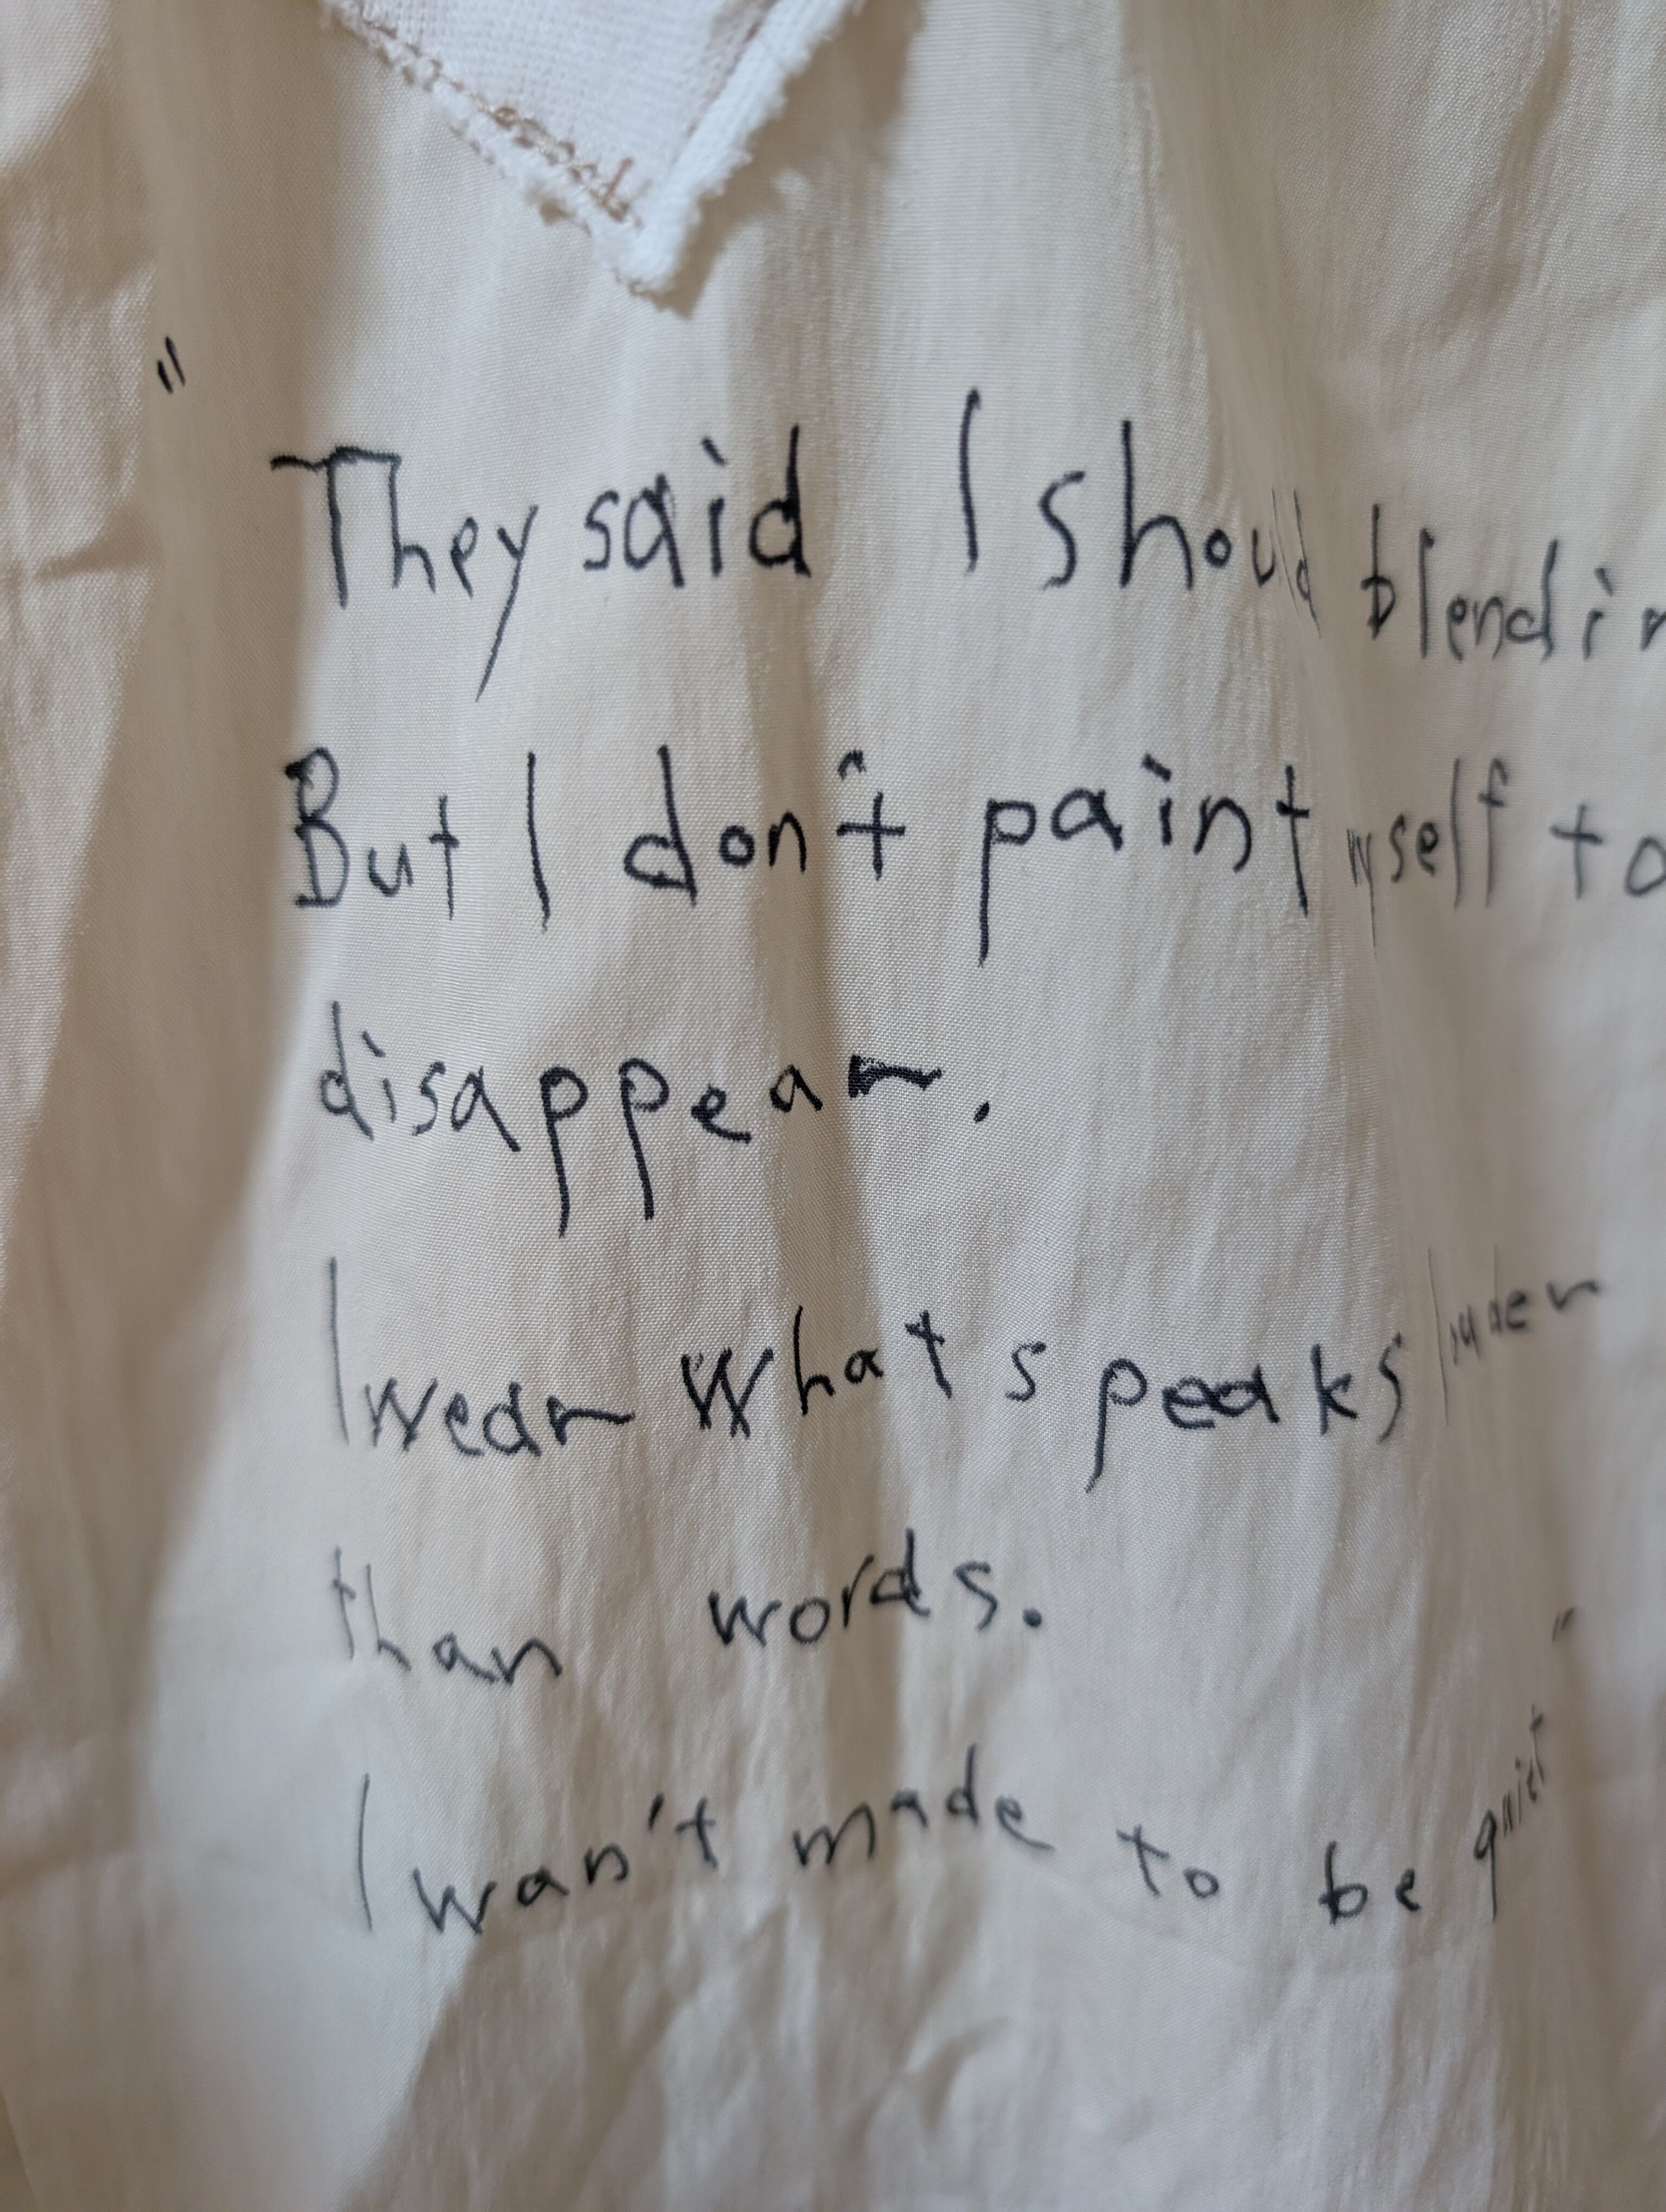 "
They said I shoud blend in
But I don't paint myself to
disappear.
I wear what speaks louder
than words.
I wan't made to be quiet"